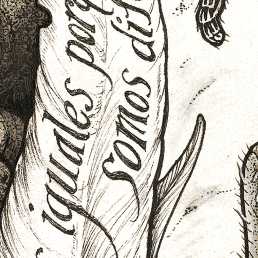 iguales porq
somos di